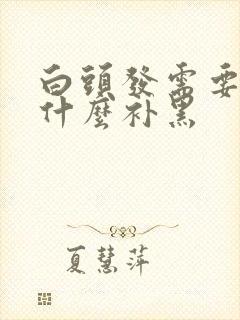 白頭發需要
什麼补黑
夏慧萍